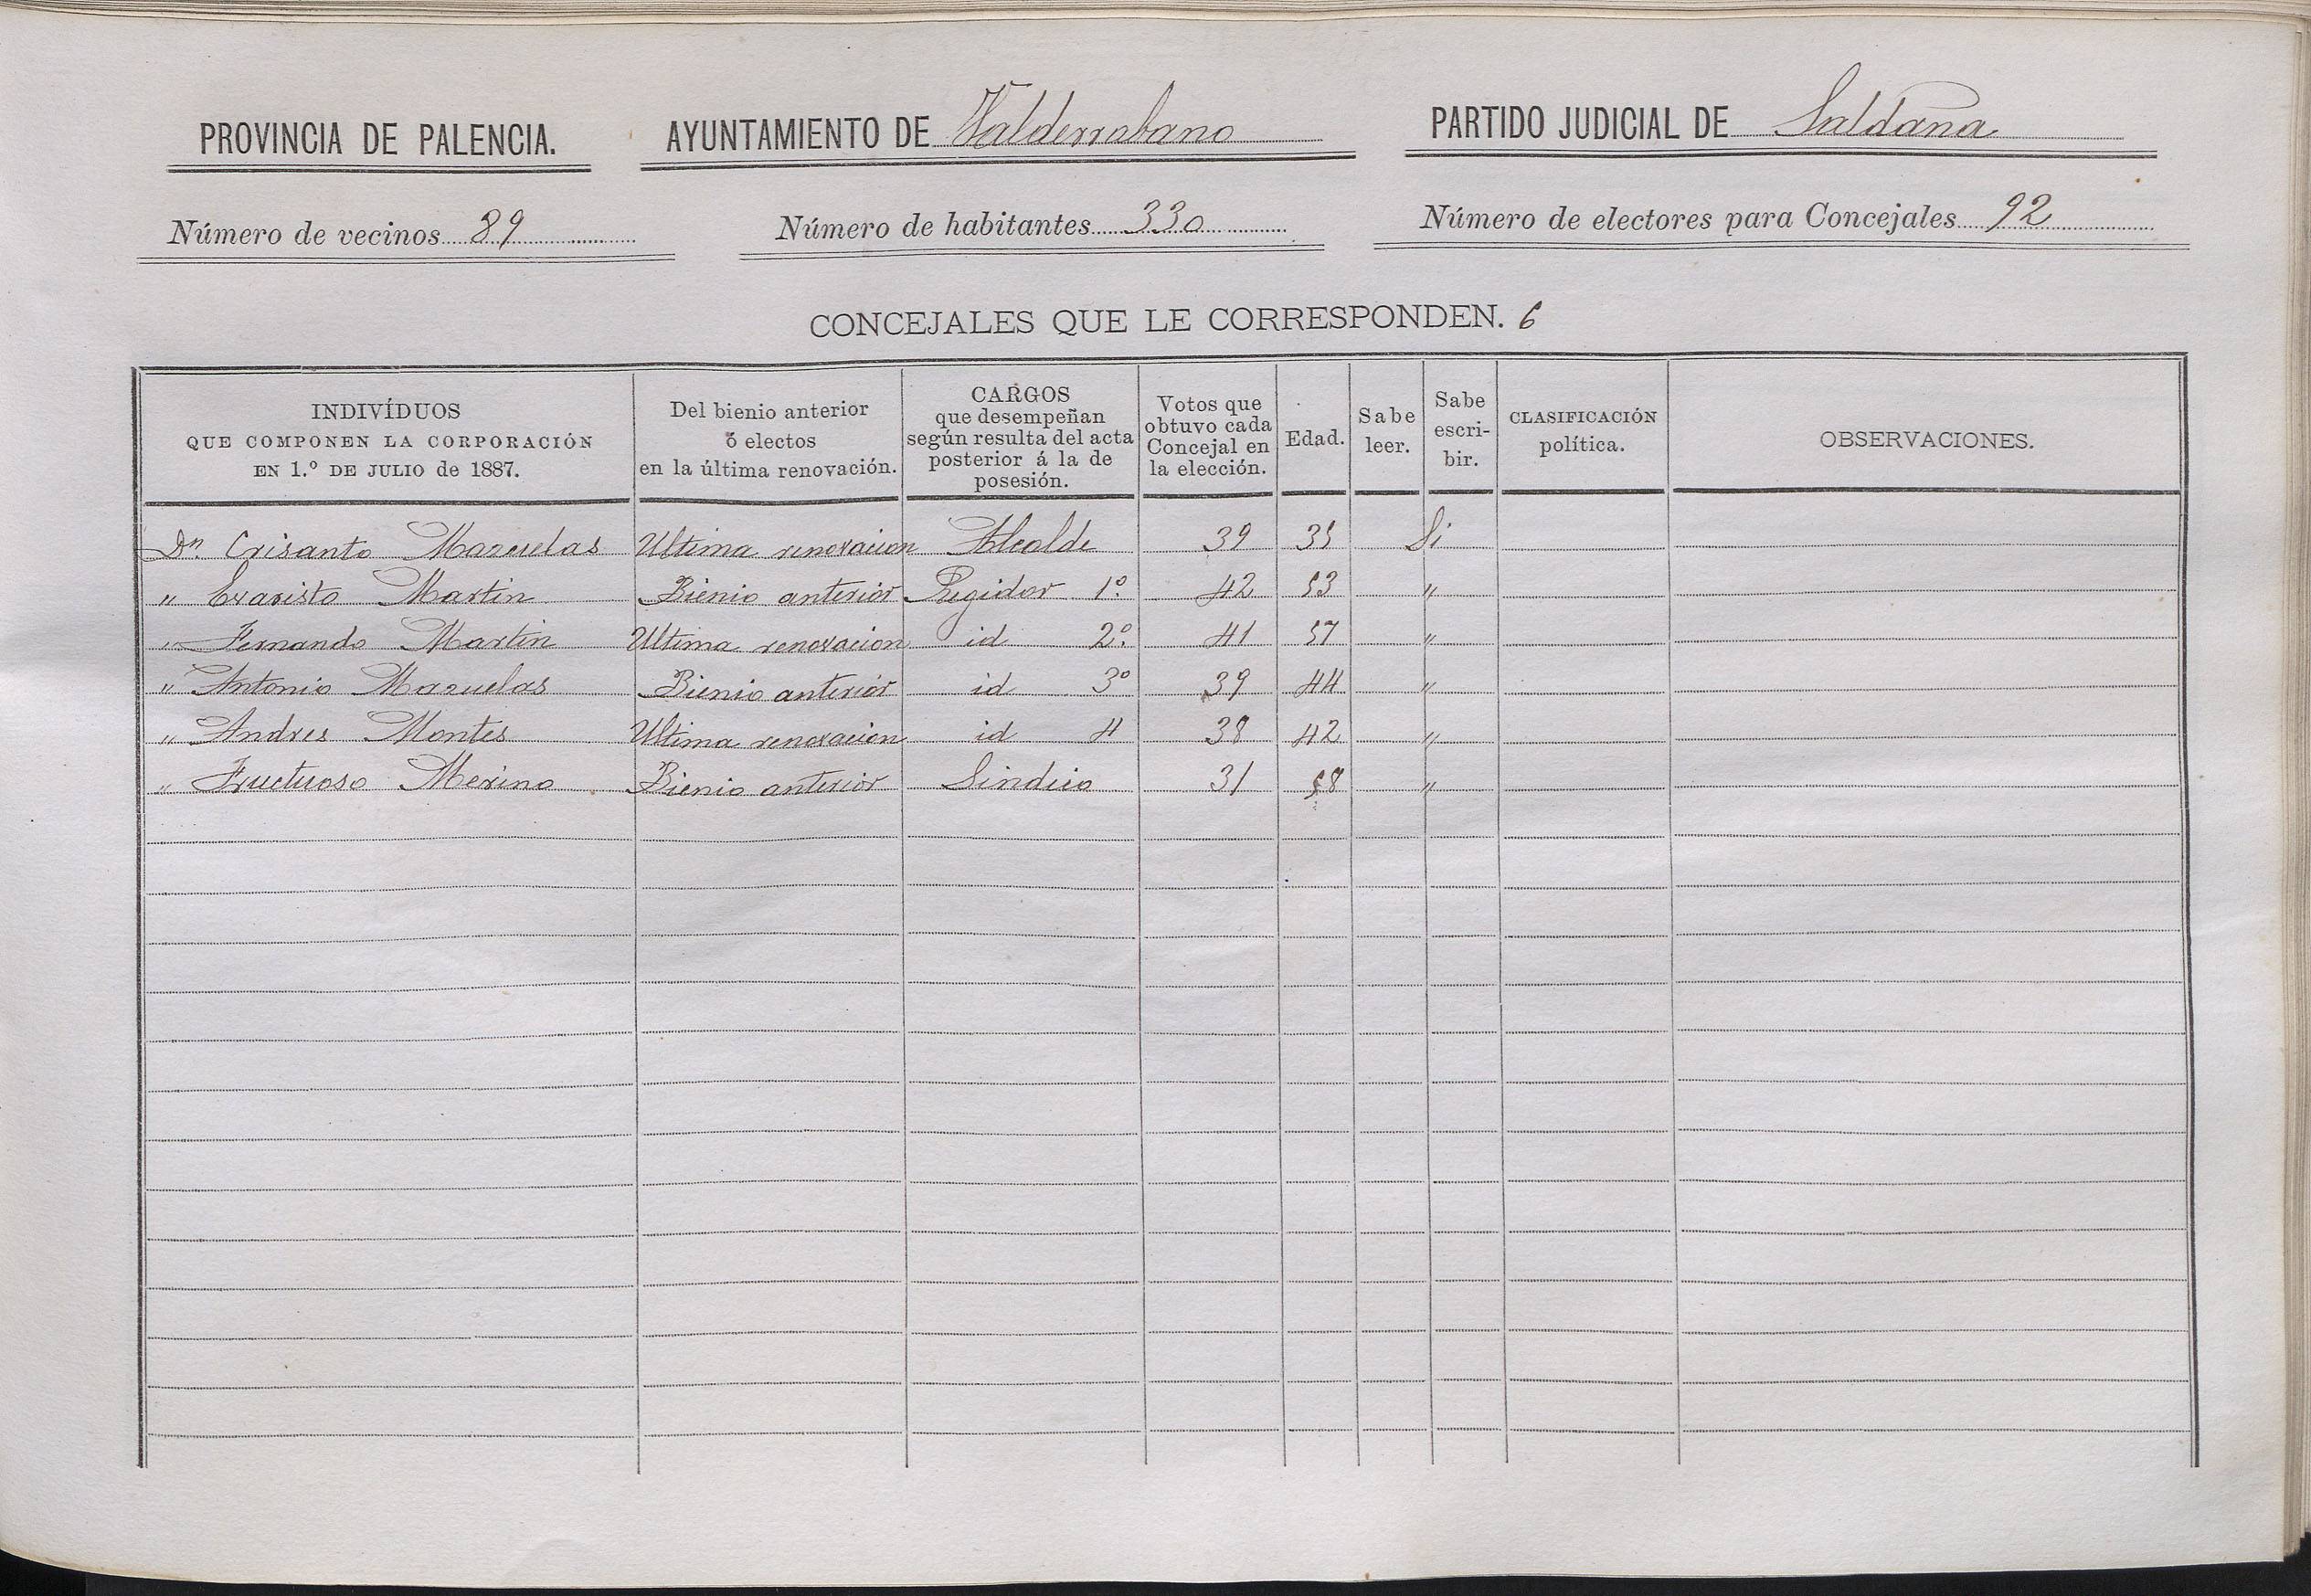 PROVINCIA DE PALENCIA. AYUNTAMIENTO DE Valderrabano PARTIDO JUDICIAL DE Saldaña
Número de vecinos 89 Número de habitantes 330 Número de electores para Concejales 92
CONCEJALES QUE LE CORRESPONDEN. 6
INDIVÍDUOS
QUE COMPONEN LA CORPORACIÓN
EN 1.º DE JULIO de 1887.
Del bienio anterior
ó electos
en la última renovación.
CARGOS
que desempeñan
según resulta del acta
posterior á la de
posesión.
Votos que
obtuvo cada
Concejal en
la elección.
Edad.
Sabe
leer.
Sabe
escri-
bir.
CLASIFICACIÓN
política.
OBSERVACIONES.
Dn. Crisanto Mazuelas Ultima renovacion Alcalde 39 35 Si
" Evaristo Martin Bienio anterior Regidor 1º. 42 53 "
" Fernando Martin Ultima renovacion id 2º. 41 57 "
" Antonio Mazuelas Bienio anterior id 3º 39 44 "
" Andres Montes Ultima renovacion id 4 38 42 "
" Fructuoso Merino Bienio anterior Sindico 31 58 "